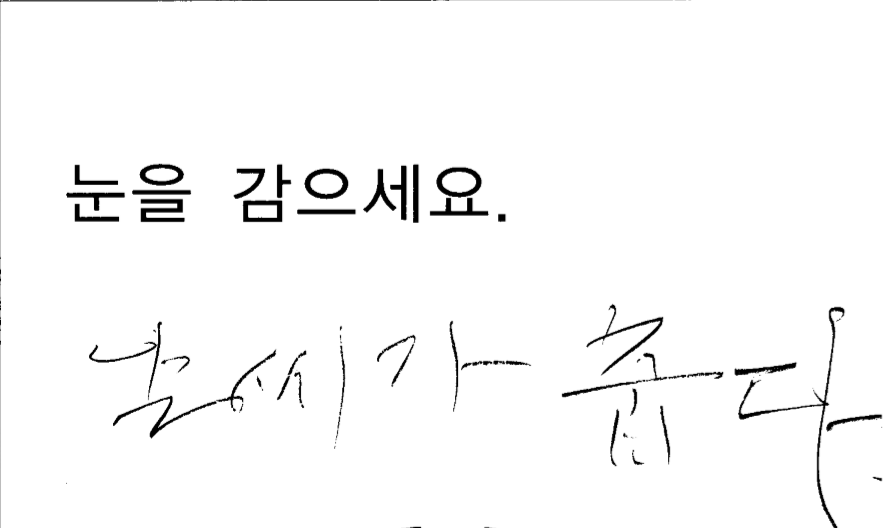 눈을 감으세요.
날씨가 춥다.